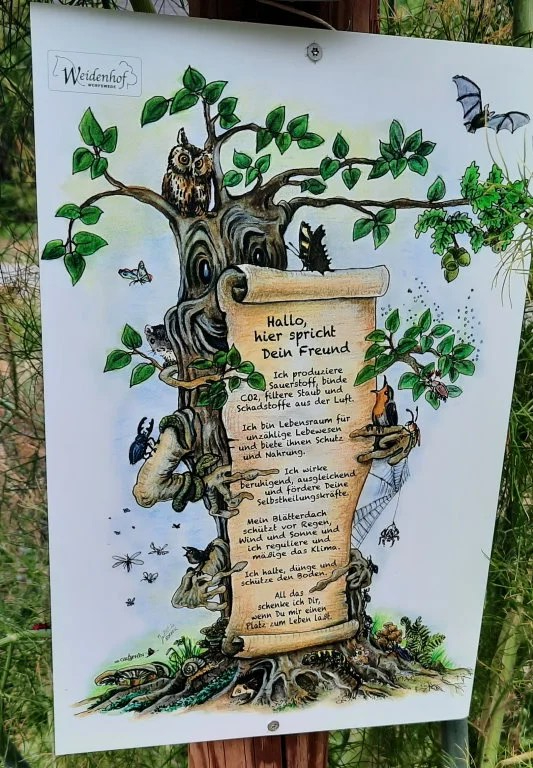 Weidenhof
Hallo,
hier spricht
Dein Freund
Ich produziere
Sauerstoff, binde
CO2, filtere Staub und
Schadstoffe aus der Luft.
Ich bin Lebensraum für
unzählige Lebewesen
und biete ihnen Schutz
und Nahrung.
Ich wirke
beruhigend, ausgleichend
und fördere Deine
Selbstheilungskräfte.
Mein Blätterdach
schützt vor Regen,
Wind und Sonne und
ich reguliere und
mäßige das Klima.
Ich halte, dünge und
schütze den Boden.
All das
schenke ich Dir,
wenn Du mir einen
Platz zum Leben läßt.